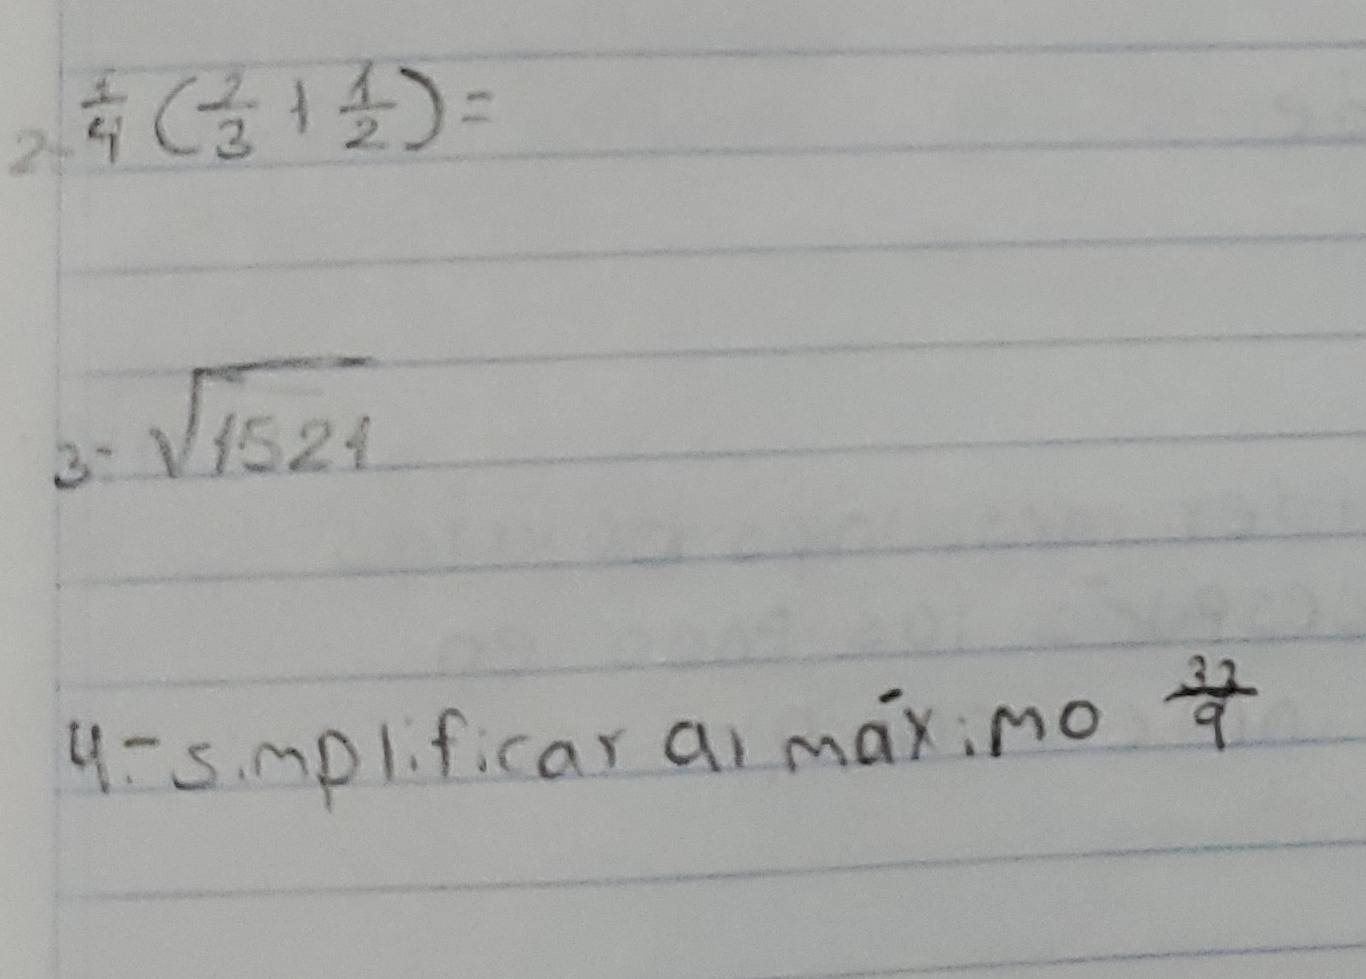 2- 1/4 (2/3 + 1/2) =
3- √1521
4.- simplificar al máximo 32/9